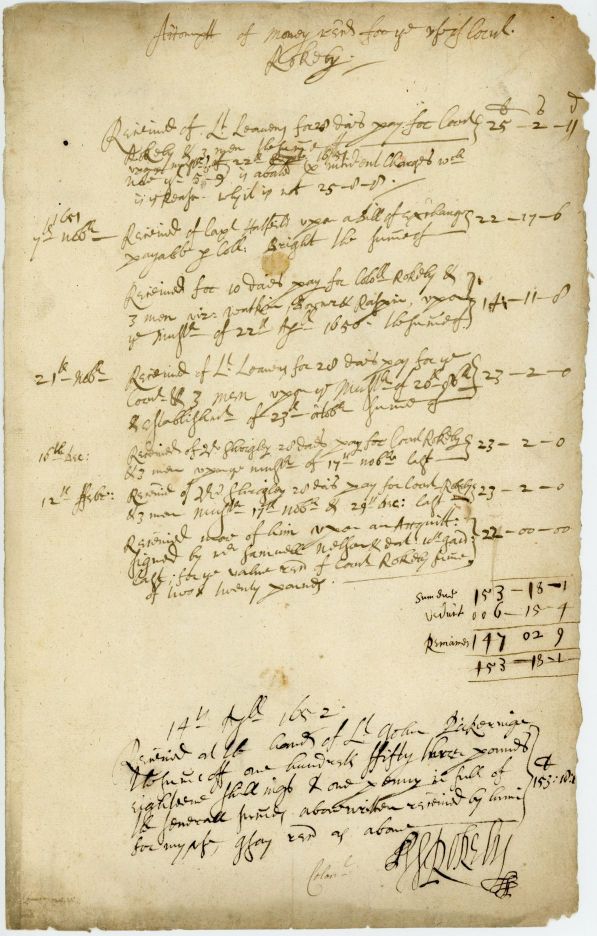 Accompt of money recd for ye use of Coll.
Rokeby:
li s d
Received of Lt Leavens for 28 daies pay for Coll 25 - 2 - 11
Rokeby & 3 men
upon of 22th
note is abated incident Charges wch
is ye Reason why it is not 25-8-8.
1651
7th Nobr Received of Capt Hatfeild upon a Bill of Exchange 22 - 17 - 6
payable p Coll: Bright the summe of
Received for 10 daies pay for Collo Rokeby &
3 men viz: upon 14 - 11 - 8
ye Mustr of 22th Aprll 1650 the summe of
21th Nobr Received of Lt Leavens for 28 daies pay for ye
Coll & 3 men upon ye Mustr of 20th 23 - 2 - 0
& establishmt of 23th Octobr summe of
16th Dec: Received of 28 daies pay for Coll Rokeby 23 - 2 - 0
& 3 men upon ye mustr of 17th Nobr last
12th Febr: Received of 28 daies pay for Coll Rokeby 23 - 2 - 0
& 3 men Mustr 17th Nobr & 29th Dec: last
Received more of him upon an Acquitt: 22 - 00 - 00
signed by Mr Samuell Nelson & dat:
last; for ye value recd of Coll Rokeby summe
of two & twenty pounds.
Summe 153 - 18 - 1
deduct 006 - 15 - 4
Remaines 147 02 9
153 - 18 - 1
14th Aprll 1652.
Received at the hands of Lt John Pickeringe
the summe of one hundreth fifty three pounds
eighteene shillings & one penny in full of 153: 18: 1
the severall summes abovewritten received by him
for my use, I say recd as above
Rokeby
Colonl